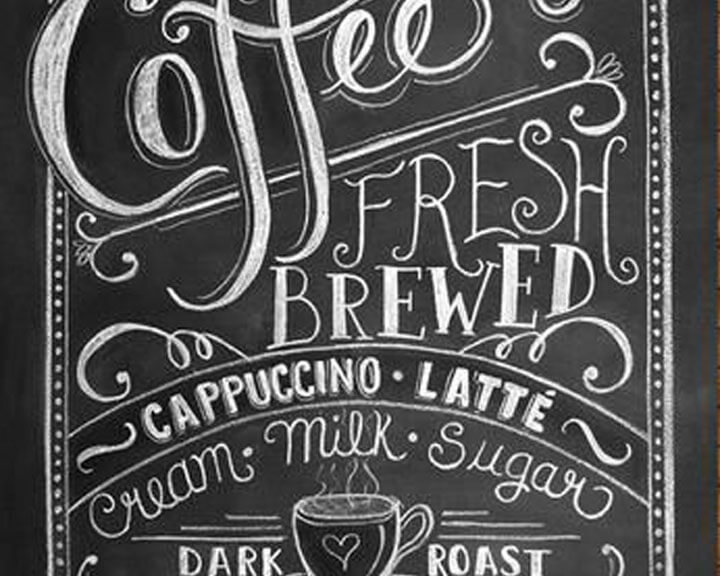 Coffee
FRESH
BREWED
CAPPUCCINO · LATTÉ
cream · milk · sugar
DARK ROAST